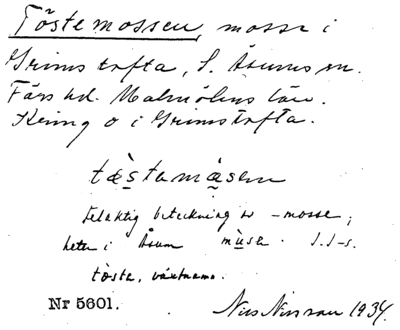 Töstemossen, mosse i
Grimstofta, S. Åsums sn.
Färs hd. Malmöhus län.
Kring o i Grimstofta.
tæ̀stamåsen
Felaktig beteckning av -mosse,
heter i Åsum mùse.
tòsta, växtnamn.
Nr 5601.
Nils Nilsson 1934.